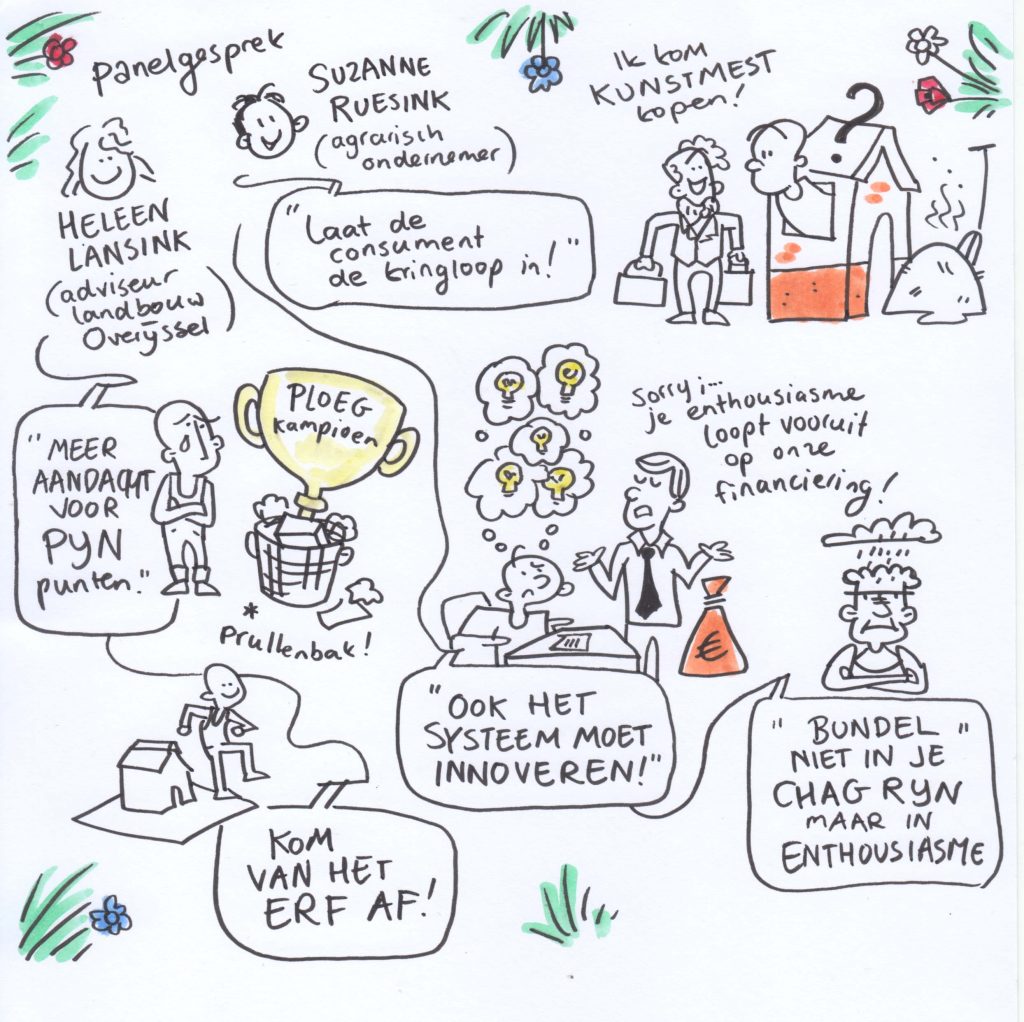 panelgesprek
SUZANNE
RUESINK
(agrarisch
ondernemer)
"Laat de
consument
de kringloop in!"
Ik kom
KUNSTMEST
kopen!
?
HELEEN
LANSINK
(adviseur
landbouw
Overijssel)
"MEER
AANDACHT
VOOR
PIJN
punten."
PLOEG
kampioen
*
prullenbak!
KOM
VAN HET
ERF AF!
Sorry i...
je enthousiasme
loopt vooruit
op onze
financiering!
€
"OOK HET
SYSTEEM MOET
INNOVEREN!"
"BUNDEL"
NIET IN JE
CHAGRIJN
MAAR IN
ENTHOUSIASME